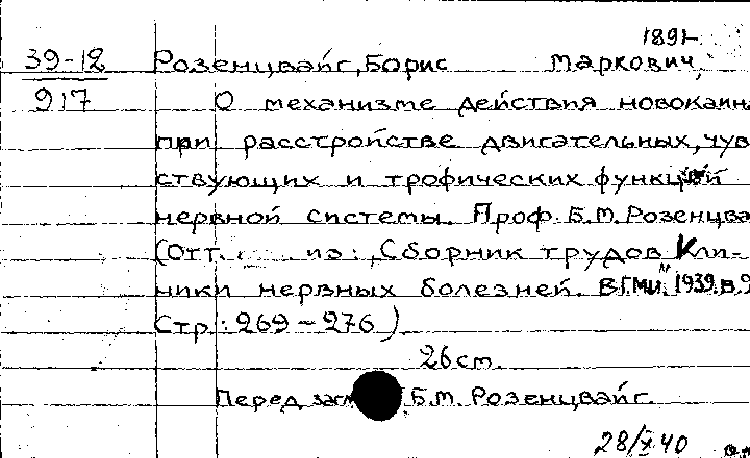 1891-
39-12 Розенцвайг, Борис Маркович,
917 О механизме действия новокаина
при расстройстве двигательных, чув
ствующих и трофических функций
нервной системы. Проф. Б.М. Розенцва
(Отт. из: „Сборник трудов Кли-
ники нервных болезней. ВГМИ" 1939. в.
Стр.: 269-276)
26 см.
Перед Б.М. Розенцвайг.
28/X 40